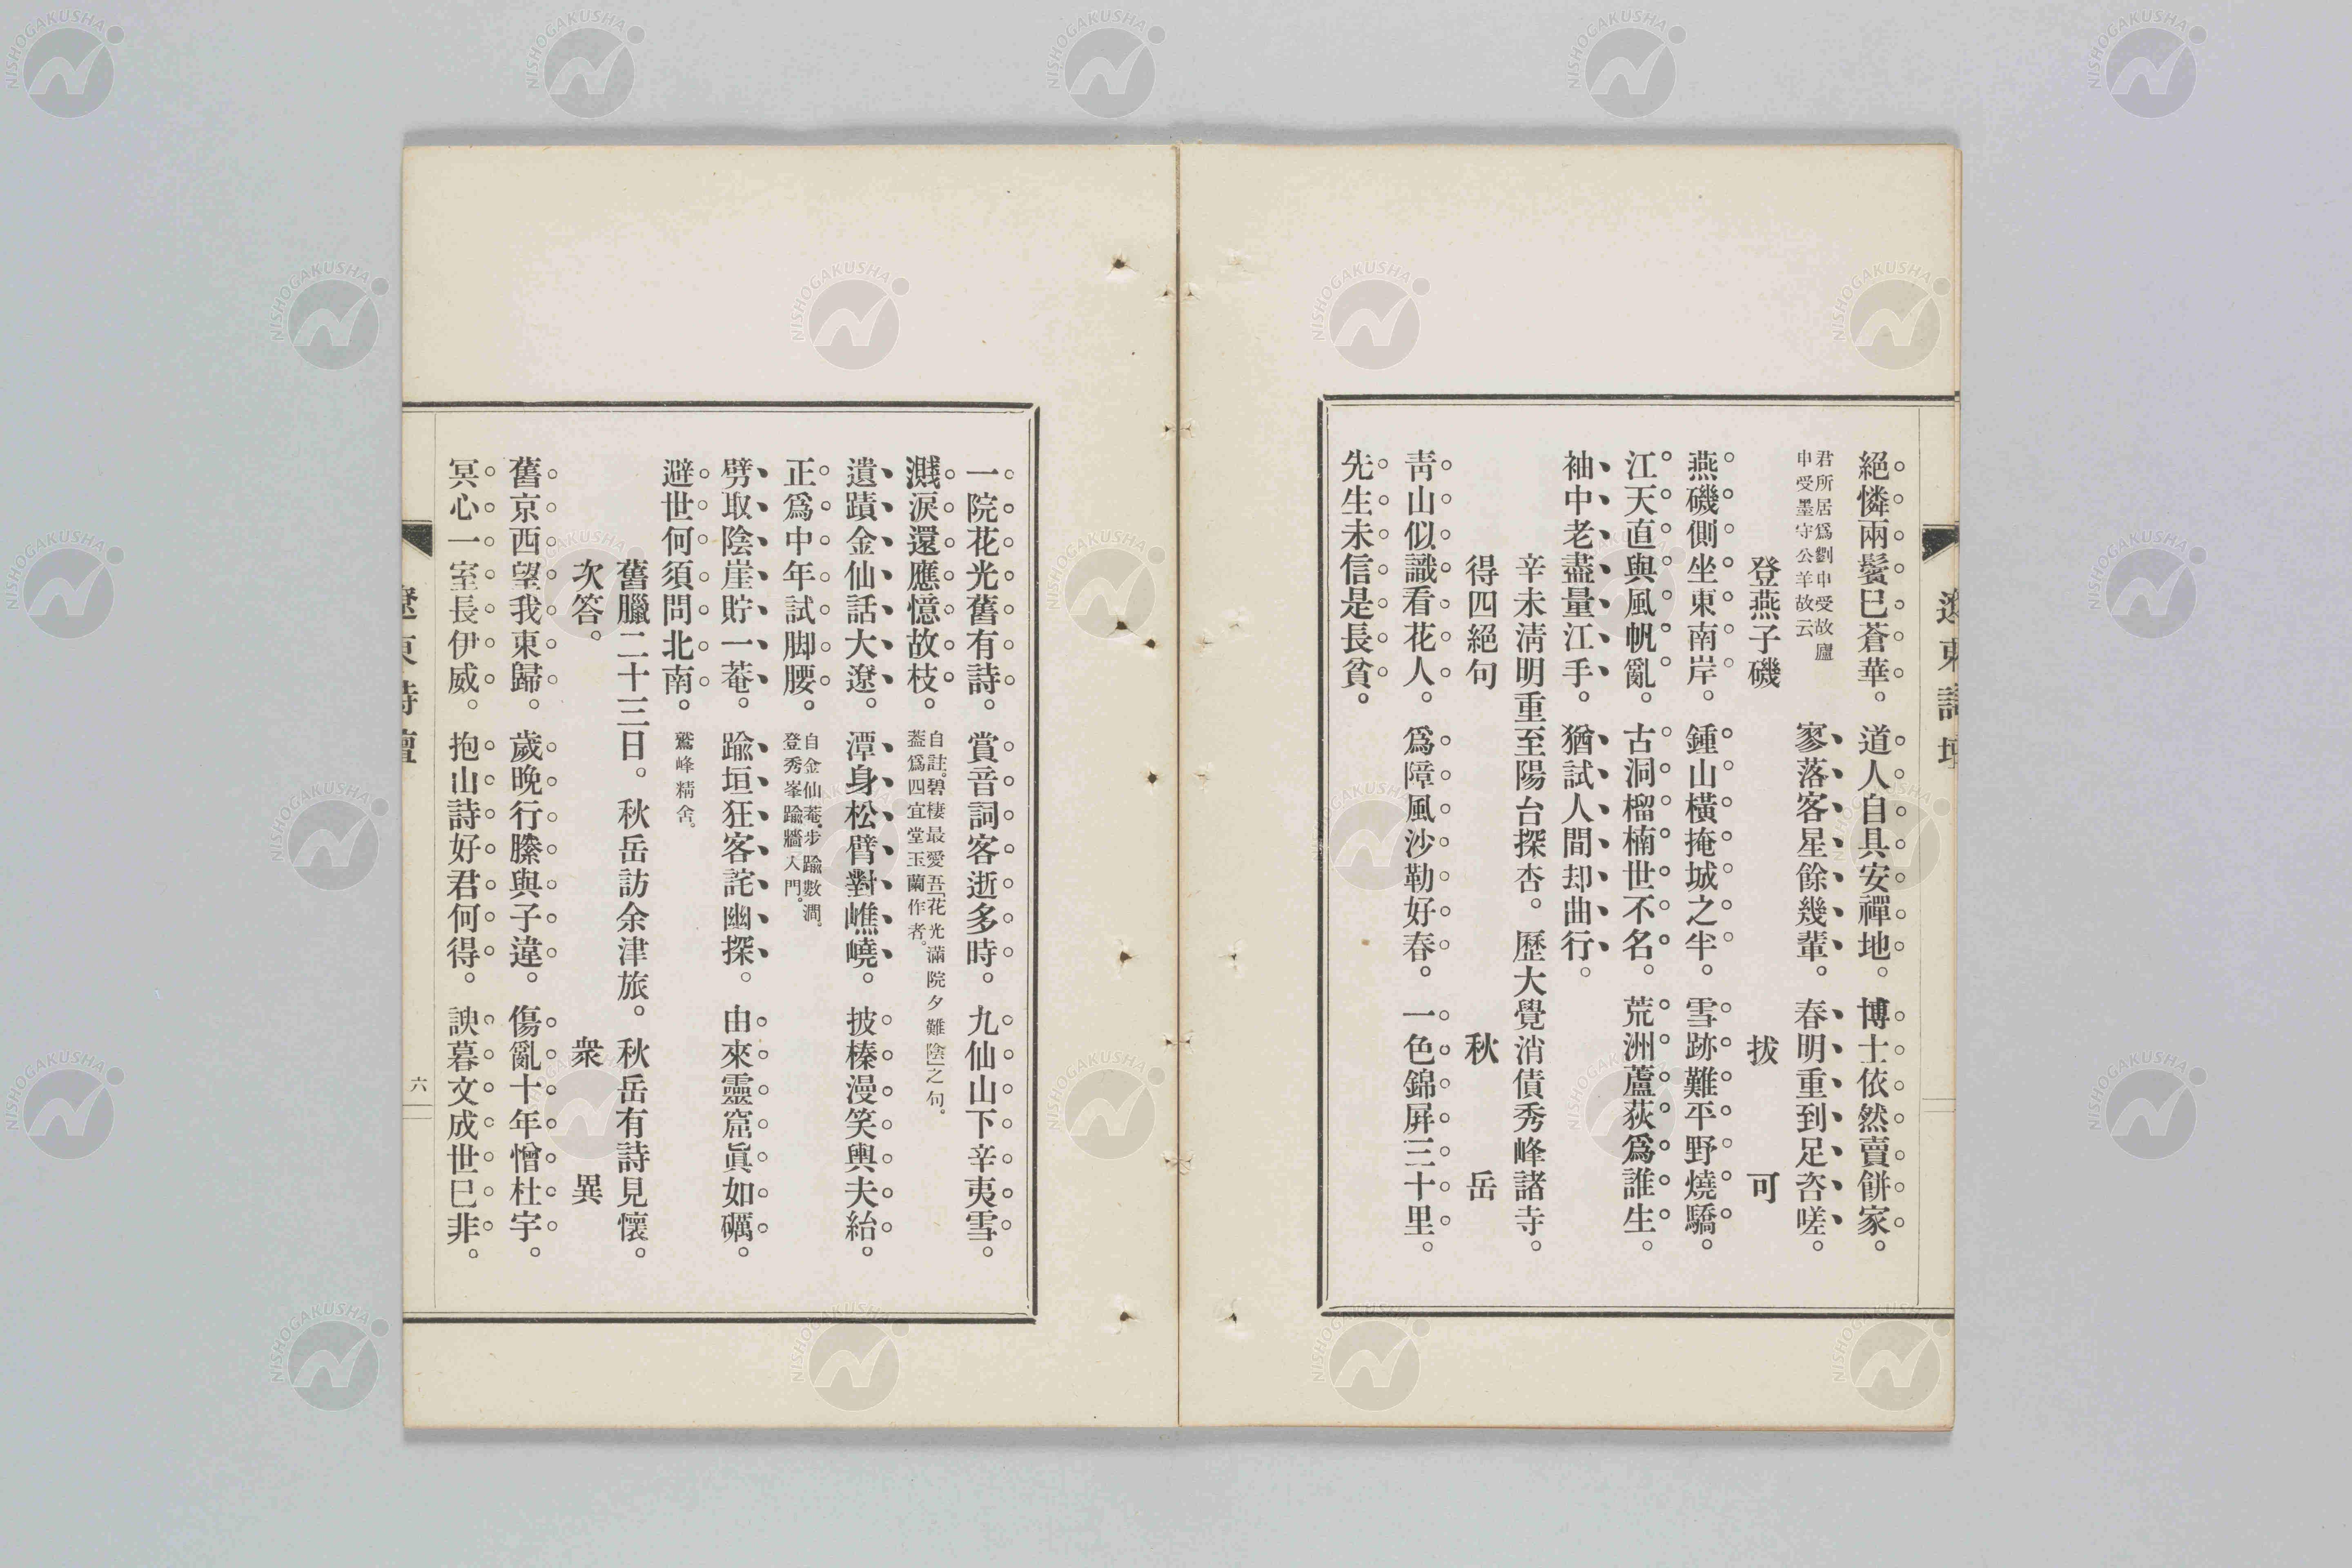 絕憐兩鬢巳蒼華。道人自具安禪地。博士依然賣餅家。
君所居爲劉申受故廬
申受墨守公羊故云
寥落客星餘幾輩。春明重到足咨嗟。
登燕子磯 拔可
燕磯側坐東南岸。鍾山橫掩城之半。雪跡難平野燒驕。
江天直與風帆亂。古洞榴楠世不名。荒洲蘆荻爲誰生。
袖中老盡量江手。猶試人間却曲行。
辛未淸明重至陽台探杏。歷大覺消債秀峰諸寺。
得四絕句 秋岳
靑山似識看花人。爲障風沙勒好春。一色錦屛三十里。
先生未信是長貧。
一院花光舊有詩。賞音詞客逝多時。九仙山下辛夷雪。
濺淚還應憶故枝。
自註。碧棲最愛吾「花光滿院夕難陰」之句。
葢爲四宜堂玉蘭作者。
遺蹟金仙話大遼。潭身松臂對嶕嶢。披榛漫笑輿夫紿。
正爲中年試脚腰。
自金仙菴。步踰數澗。
登秀峯踰牆入門。
劈取陰崖貯一菴。踰垣狂客詫幽探。由來靈窟眞如礪。
避世何須問北南。鷲峰精舍。
舊臘二十三日。秋岳訪余津旅。秋岳有詩見懷。
次答。 衆異
舊京西望我東歸。歲晚行縢與子違。傷亂十年憎杜宇。
冥心一室長伊威。抱山詩好君何得。諛暮文成世巳非。
遼東詩壇
六